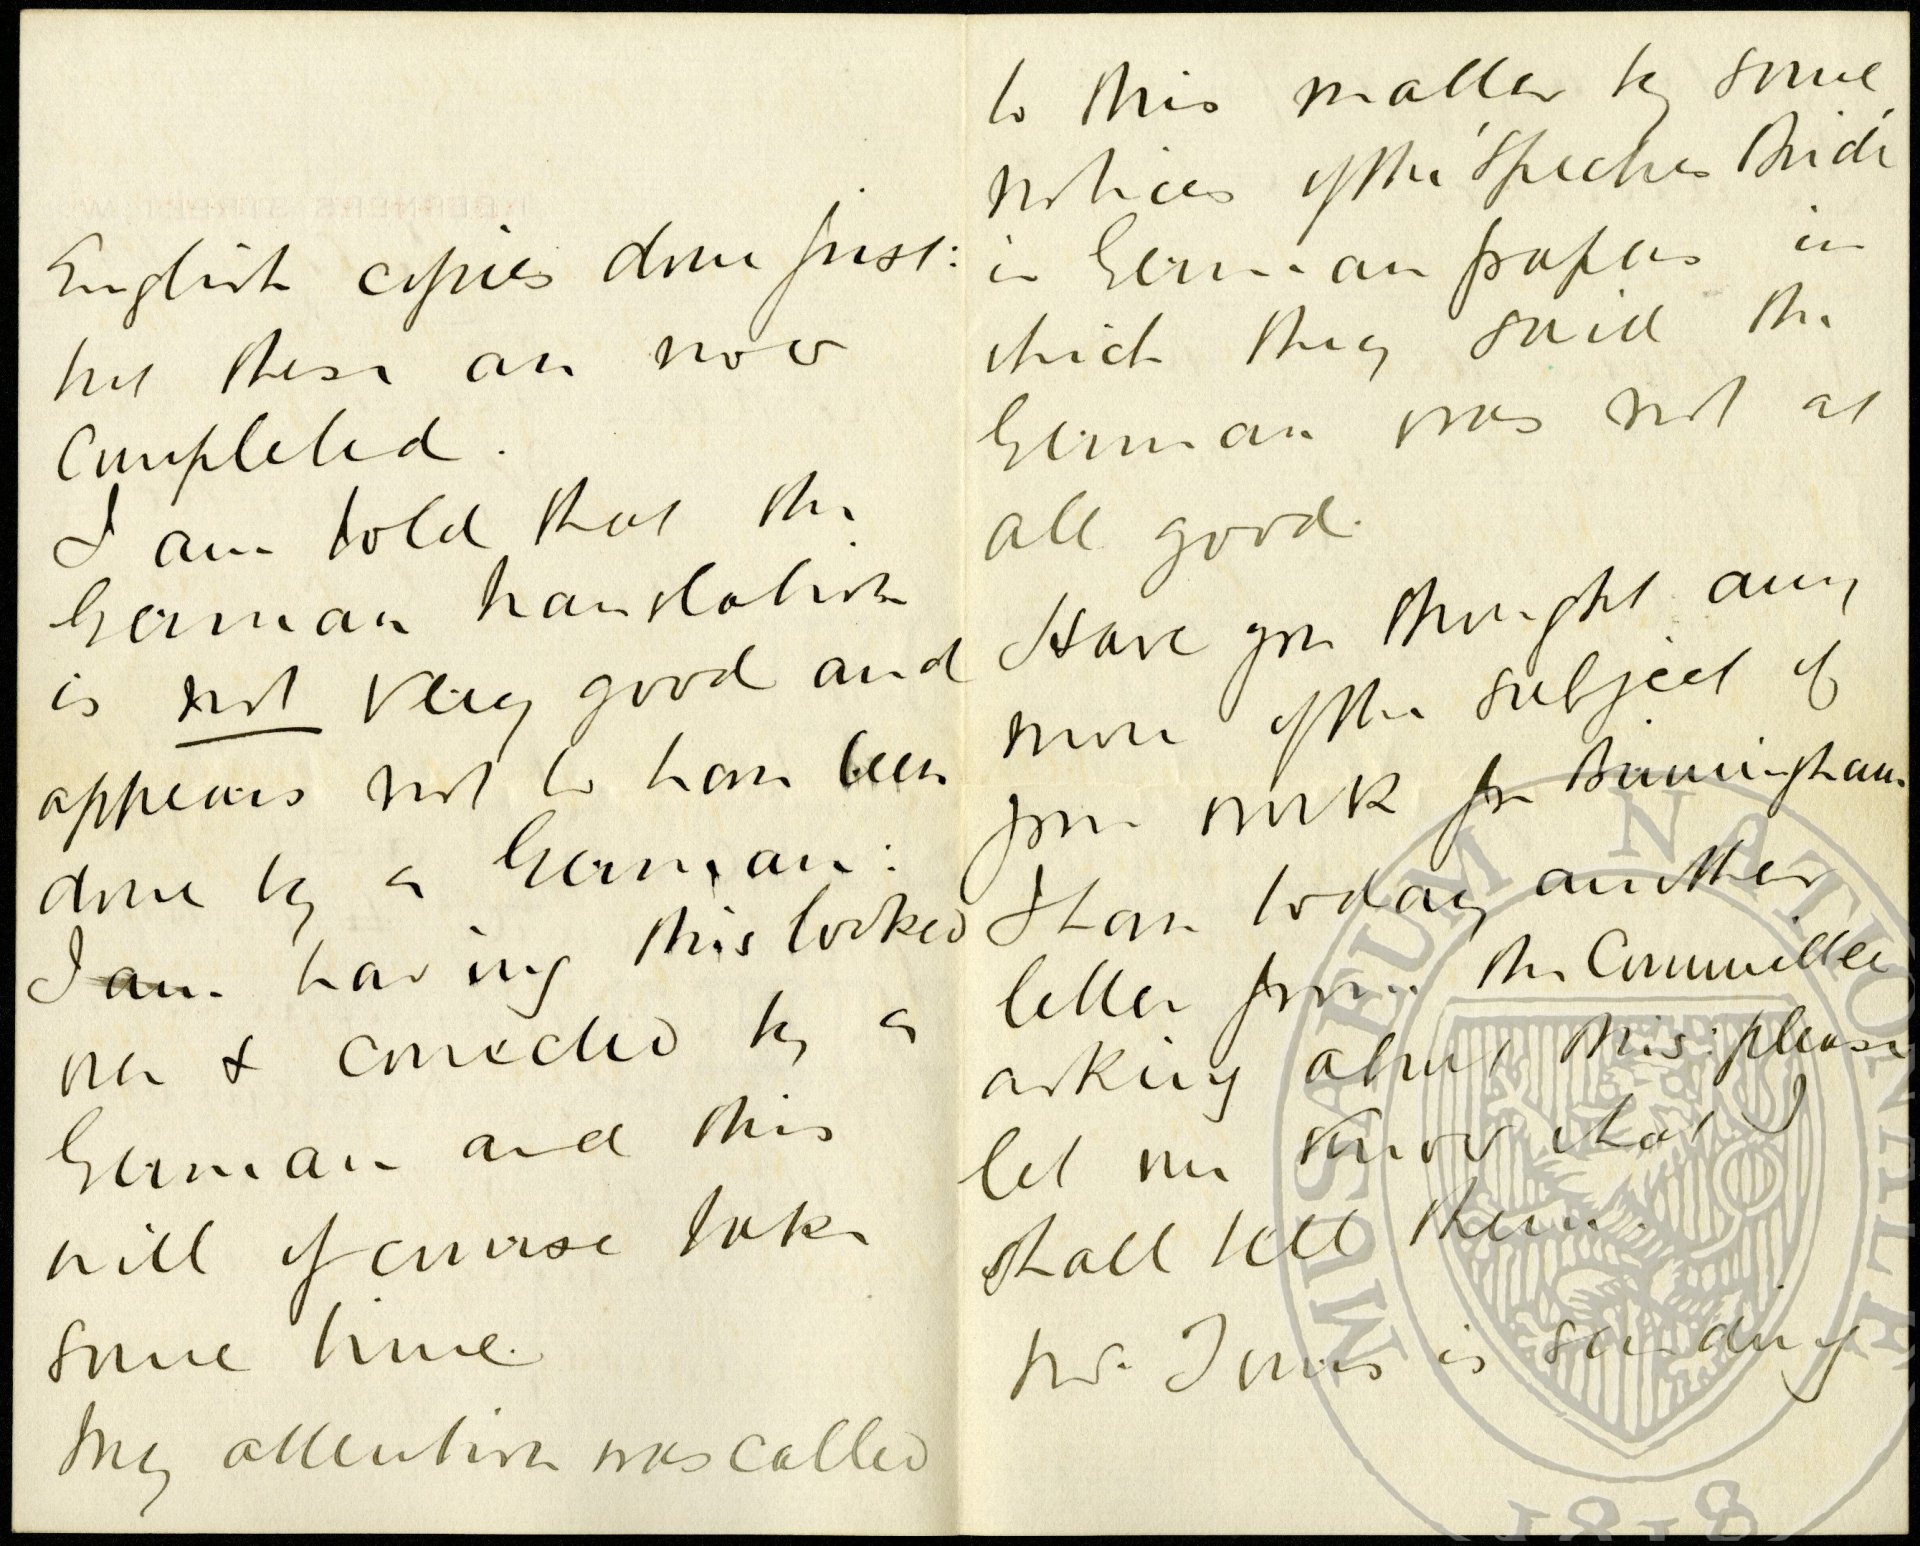 English copies done first:
but these are now
Completed.
I am told that the
German translation
is not very good and
appears not to have been
done by a German:
I am having this looked
over & corrected by a
German and this
will of course take
some time.
My attention was called
to this matter by some
notices of the 'Spectre's Bride'
in German papers in
which they said the
German was not at
all good.
Have you thought any
more of the subject of
your work for Birmingham.
I have today another
letter from the Committee
asking about this: please
let me know what I
shall tell them.
is sending
MUSAEUM NATIONALE
1818